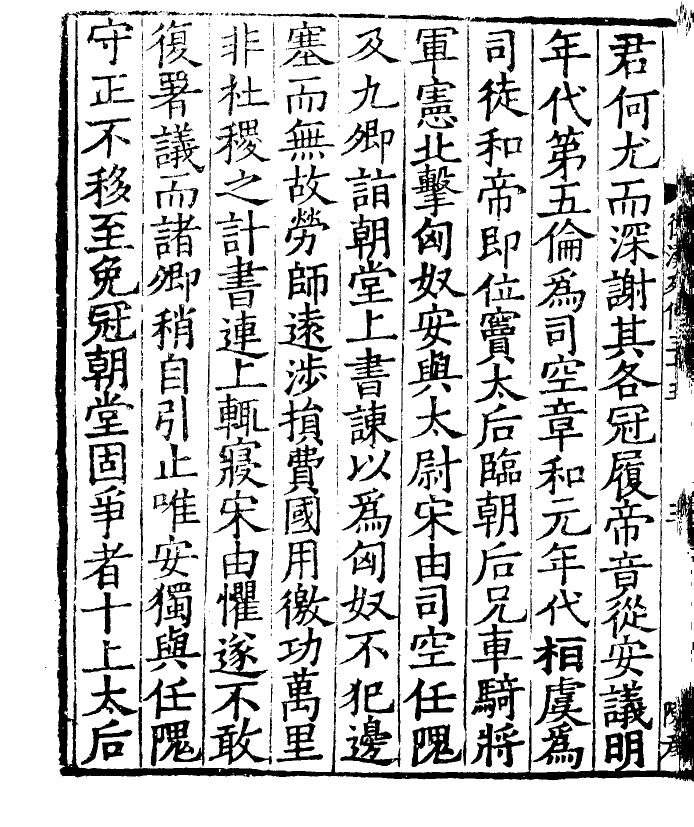 君何尤而深謝其各冠履帝竟從安議明
年代第五倫爲司空章和元年代桓虞爲
司徒和帝即位竇太后臨朝后兄車騎將
軍憲北擊匈奴安與太尉宋由司空任隗
及九卿詣朝堂上書諫以爲匈奴不犯邊
塞而無故勞師遠涉損費國用徼功萬里
非社稷之計書連上輒寢宋由懼遂不敢
復署議而諸卿稍自引止唯安獨與任隗
守正不移至免冠朝堂固爭者十上太后